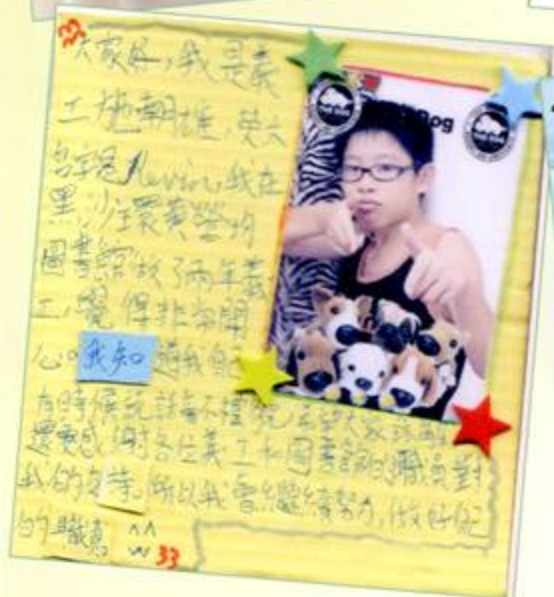 大家好,我是義
工 朝雄,英文
名字是 我在
黑沙環黃營均
圖書館做了兩年義
工,覺得非常開
心。我知道我自己
有時候說話會不禮貌,希望大家諒解
還要感謝各位義工和圖書館的職員對
我的支持。所以我會繼續努力,做好自己
的職責 ^^
33
og